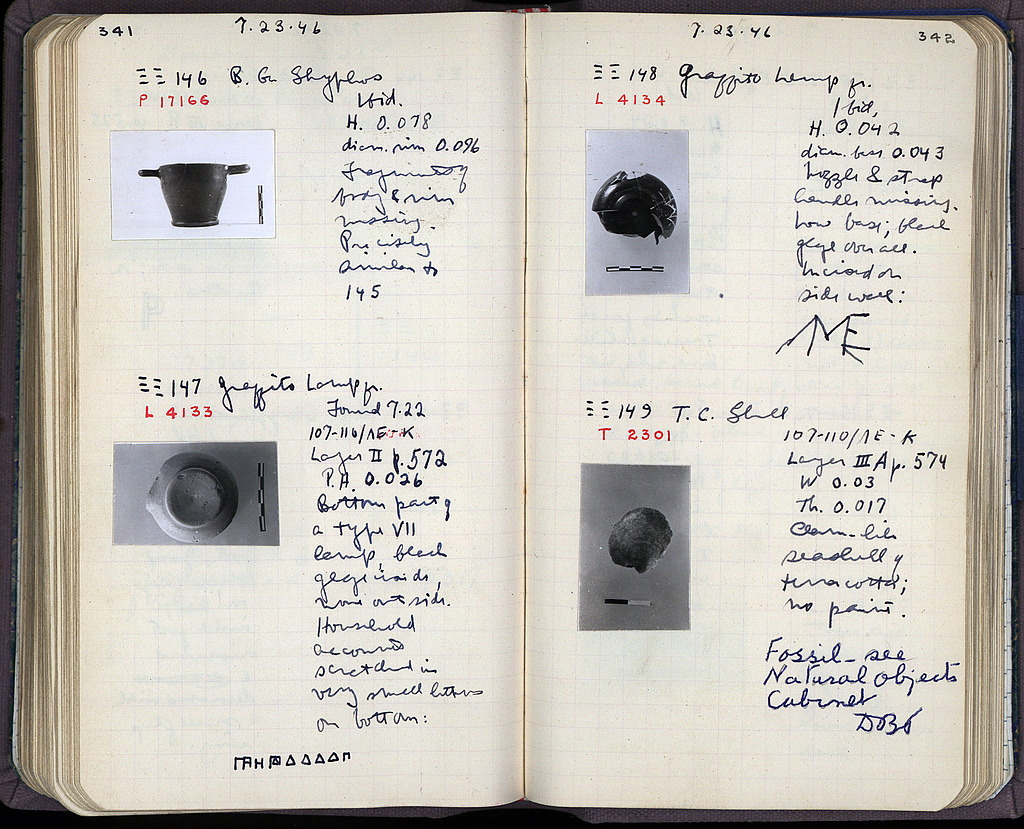 341
7.23.46
ΞΞ 146 B. Gl. Skyphos
P 17166
Ibid.
H. 0.078
diam. rim 0.096
Fragments of
body & rim
missing.
Precisely
similar to
145
ΞΞ 147 graffito Lamp fr.
L 4133
Found 7.22
107-110/ΛΕ-Κ
Layer II p. 572
P.H. 0.026
Bottom part of
a type VII
lamp, black
glaze inside,
none outside.
Household
accounts
scratched in
very small letters
on bottom:
7.23.46
342
ΞΞ 148 graffito Lamp fr.
L 4134
Ibid.
H. 0.042
diam. base 0.043
Nozzle & strap
handle missing.
Low base; black
glaze over all.
Incised on
side wall:
ΞΞ 149 T.C. Shell
T 2301
107-110/ΛΕ-Κ
Layer III A p. 574
W 0.03
Th. 0.017
Clam-like
seashell of
terracotta;
no paint.
Fossil - see
Natural Objects
Cabinet